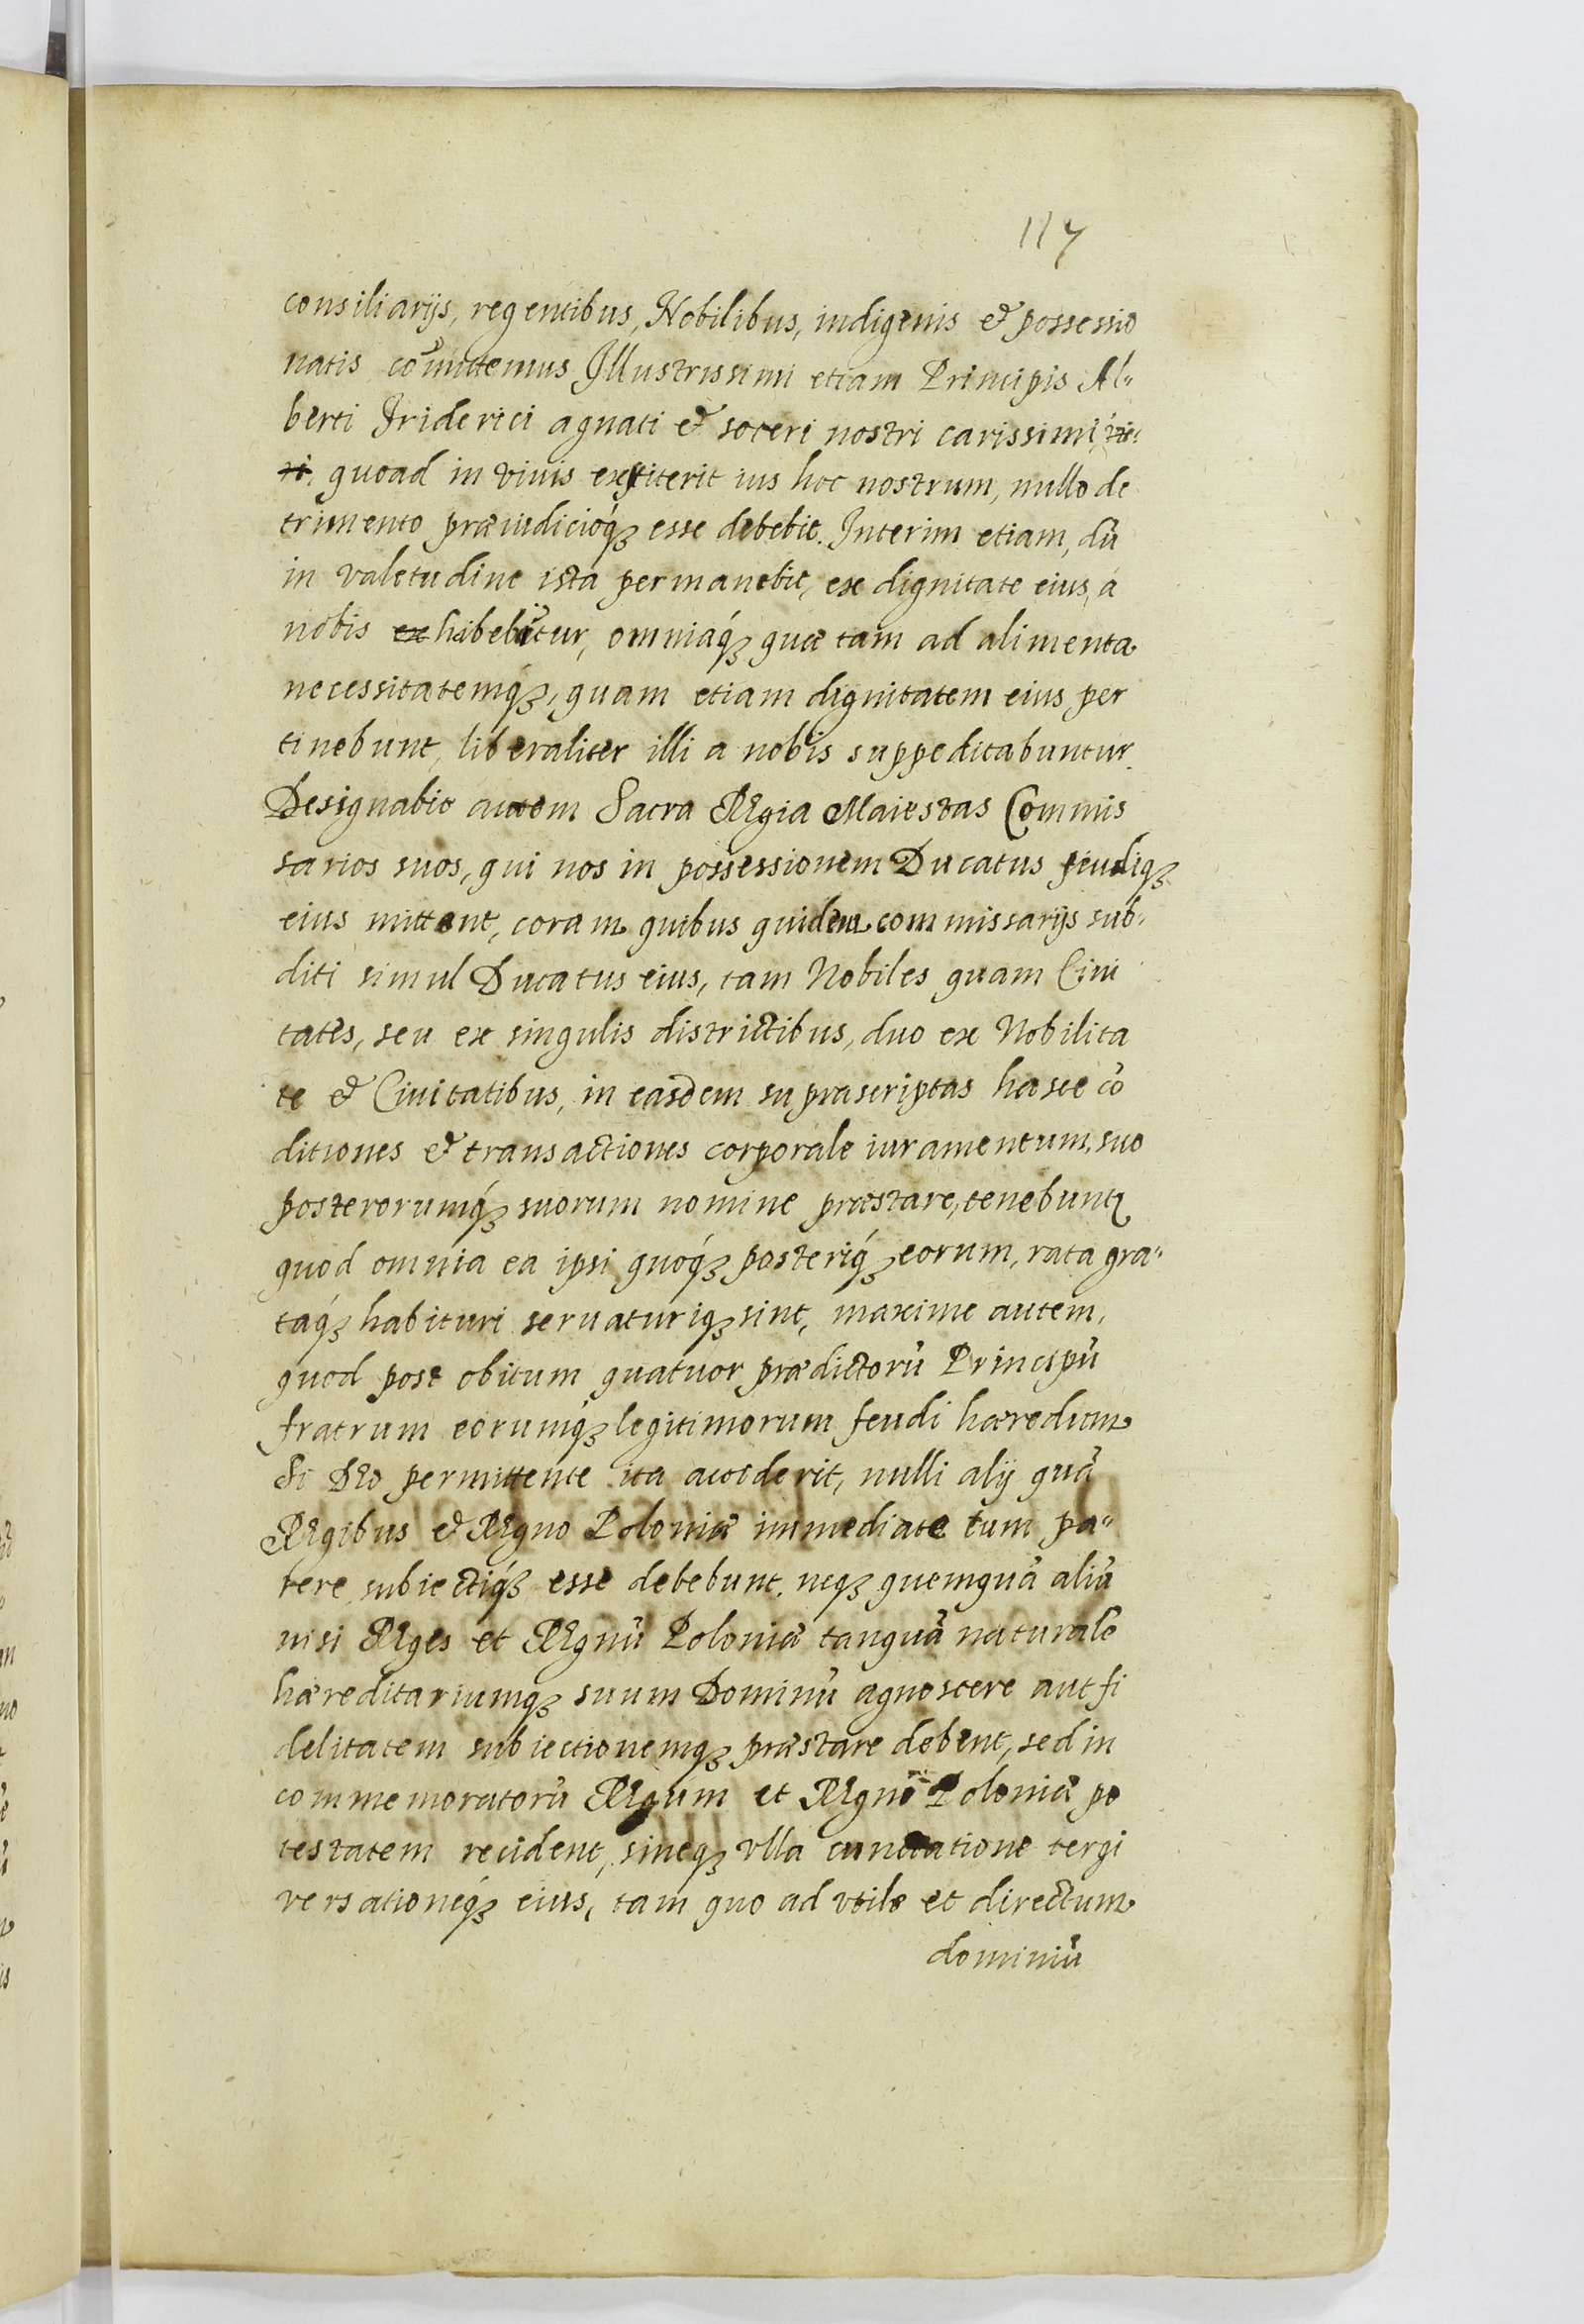 117
consiliarijs, regentibus, Nobilibus, indigenis et possessio
natis com̃ittemus Illustrissimi etiam Principis Al"
berti Friderici agnati et soceri nostri carissimi,
quoad in vivis exstiterit ius hoc nostrum, nullo de
trimento præiudicioq́ꝫ esse debebit. Interim etiam, dũ
in valetudine ista permanebit, ex dignitate eius, à
nobis ex habebitur, omniaq́ꝫ quæ tam ad alimenta
necessitatemq́ꝫ, quam etiam dignitatem eius per
tinebunt, liberaliter illi a nobis suppeditabuntur.
Designabit autem Sacra Regia Maiestas Commis
sarios suos, qui nos in possessionem Ducatus feudiqꝫ
eius mittent, coram quibus quidem commissarijs sub-
diti simul Ducatus eius, tam Nobiles quam Civi
tates, seu ex singulis districtibus, duo ex Nobilita
te et Civitatibus, in easdem suprascriptas hasce cõ
ditiones et transactiones corporale iuramentum, suo
posterorumq́ꝫ suorum nomine præstare, tenebunt̃
quod omnia ea ipsi quoq́ꝫ posteriq́ꝫ eorum, rata gra"
taq́ꝫ habituri servaturiqꝫ sint, maxime autem,
quod post obitum quatuor prædictorũ Principũ
fratrum eorumq́ꝫ legitimorum feudi hæredum
Si Deo permittente ita acciderit, nulli alij quã
Regibus et Regno Poloniæ immediate tum pa"
rere subiectiq́ꝫ esse debebunt. neqꝫ quemquã aliũ
nisi Reges et Regnũ Poloniæ tanquã naturalẽ
hæreditariumqꝫ suum Dominũ agnoscere aut fi
delitatem subiectionemqꝫ præstare debent, sed in
commemoratorũ Regum et Regnõ Poloniæ po
testatem recident, sineqꝫ vlla cunctatione tergi
versationeq́ꝫ eius, tam quo ad vtile et directum
dominiũ